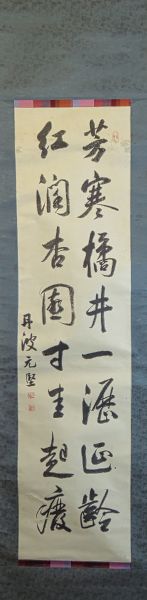 芳寒橘井一瀝延齢
红潤杏園寸圭起廢
丹波元堅